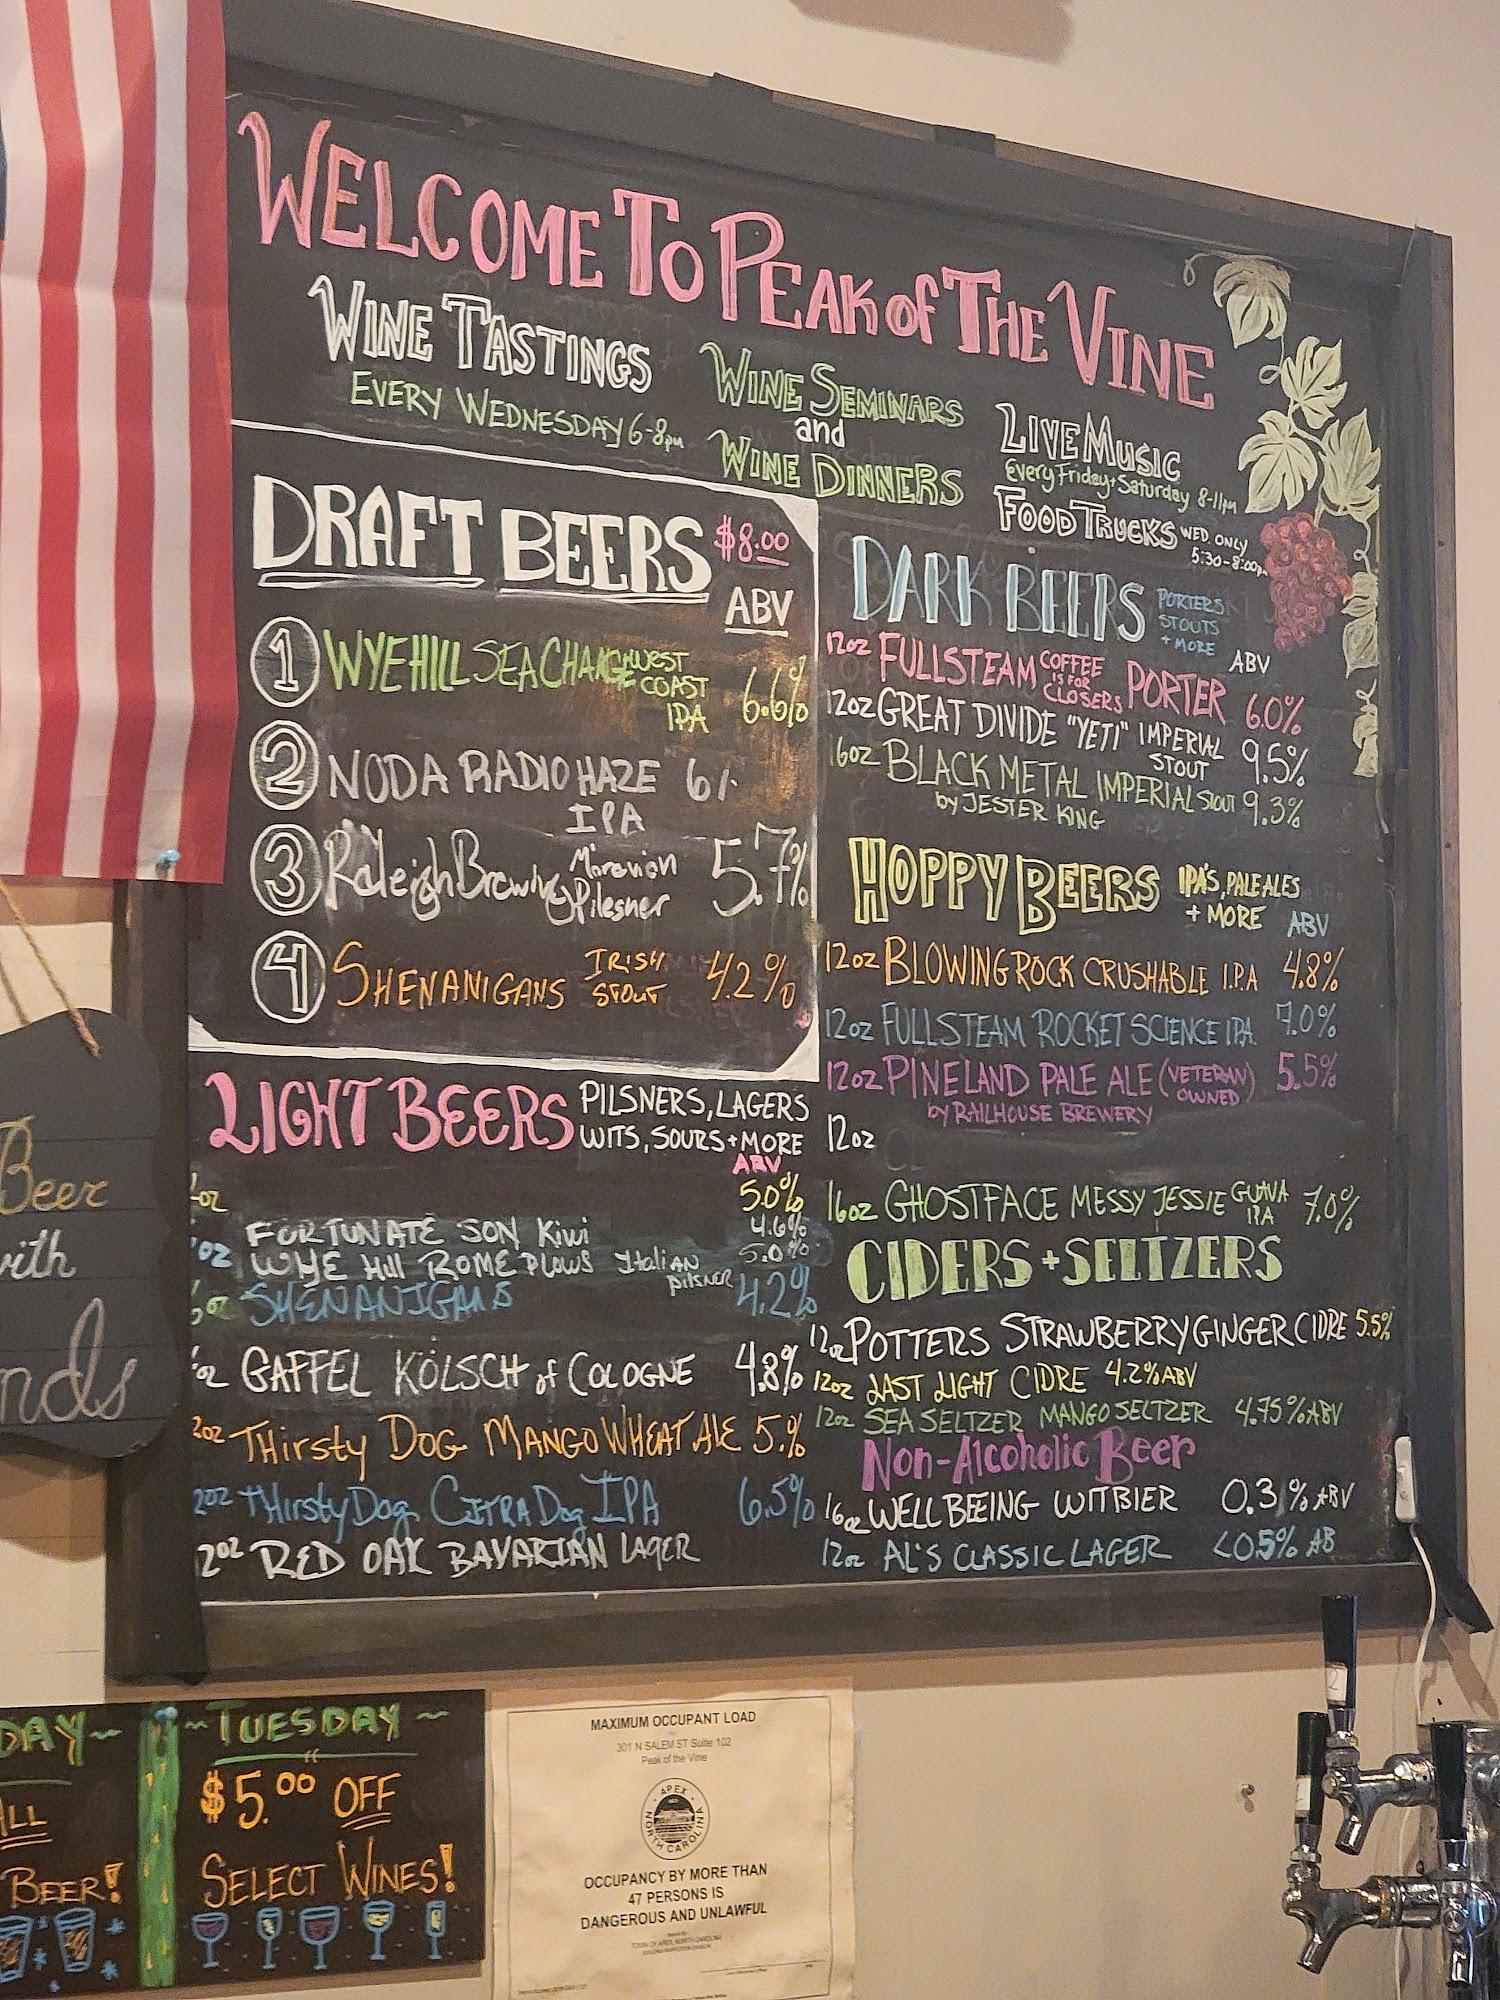 WELCOME TO PEAK OF THE VINE
WINE TASTINGS
EVERY WEDNESDAY 6-8pm
WINE SEMINARS
and
WINE DINNERS
LIVE MUSIC
Every Friday + Saturday 8-11pm
FOOD TRUCKS WED. ONLY
5:30-8:00pm
DRAFT BEERS $8.00
ABV
1 WYEHILL SEA CHANGE WEST
COAST
IPA 6.6%
2 NODA RADIO HAZE 6%
IPA
3 Raleigh Brewing Moravian
Pilesner 5.7%
4 SHENANIGANS IRISH
STOUT 4.2%
LIGHT BEERS PILSNERS, LAGERS
WITS, SOURS + MORE
ABV
oz 5.0%
FORTUNATE SON Kiwi 4.6%
oz WYE Hill ROME PLOWS Italian
pilsner 5.0%
oz SHENANIGANS 4.2%
oz GAFFEL KÖLSCH of COLOGNE 4.8%
2oz THirsty DOG MANGO WHEAT ALE 5.%
2oz THirsty Dog CITRA Dog IPA 6.5%
12oz RED OAK BAVARIAN LAGER
DARK BEERS PORTERS
STOUTS
+ MORE
ABV
12oz FULLSTEAM COFFEE
IS FOR
CLOSERS PORTER 6.0%
12oz GREAT DIVIDE "YETI" IMPERIAL
STOUT 9.5%
16oz BLACK METAL IMPERIAL STOUT 9.3%
by JESTER KING
HOPPY BEERS IPA'S, PALE ALES
+ MORE ABV
12oz BLOWING ROCK CRUSHABLE I.P.A 4.8%
12oz FULLSTEAM ROCKET SCIENCE IPA 7.0%
12oz PINELAND PALE ALE (VETERAN
OWNED) 5.5%
by RAILHOUSE BREWERY
12oz
16oz GHOSTFACE MESSY JESSIE GUAVA
IPA 7.0%
CIDERS + SELTZERS
12oz POTTERS STRAWBERRY GINGER CIDRE 5.5%
12oz LAST LIGHT CIDRE 4.2% ABV
12oz SEA SELTZER MANGO SELTZER 4.75% ABV
Non-Alcoholic Beer
16oz WELL BEEING WITBIER 0.3% ABV
12oz AL'S CLASSIC LAGER <0.5% AB
Beer
with
nds
DAY~
ALL
BEER!
~TUESDAY~
$5.00 OFF
SELECT WINES!
MAXIMUM OCCUPANT LOAD
301 N SALEM ST Suite 102
Peak of the Vine
APEX
NORTH CAROLINA
OCCUPANCY BY MORE THAN
47 PERSONS IS
DANGEROUS AND UNLAWFUL
TOWN OF APEX, NORTH CAROLINA
2